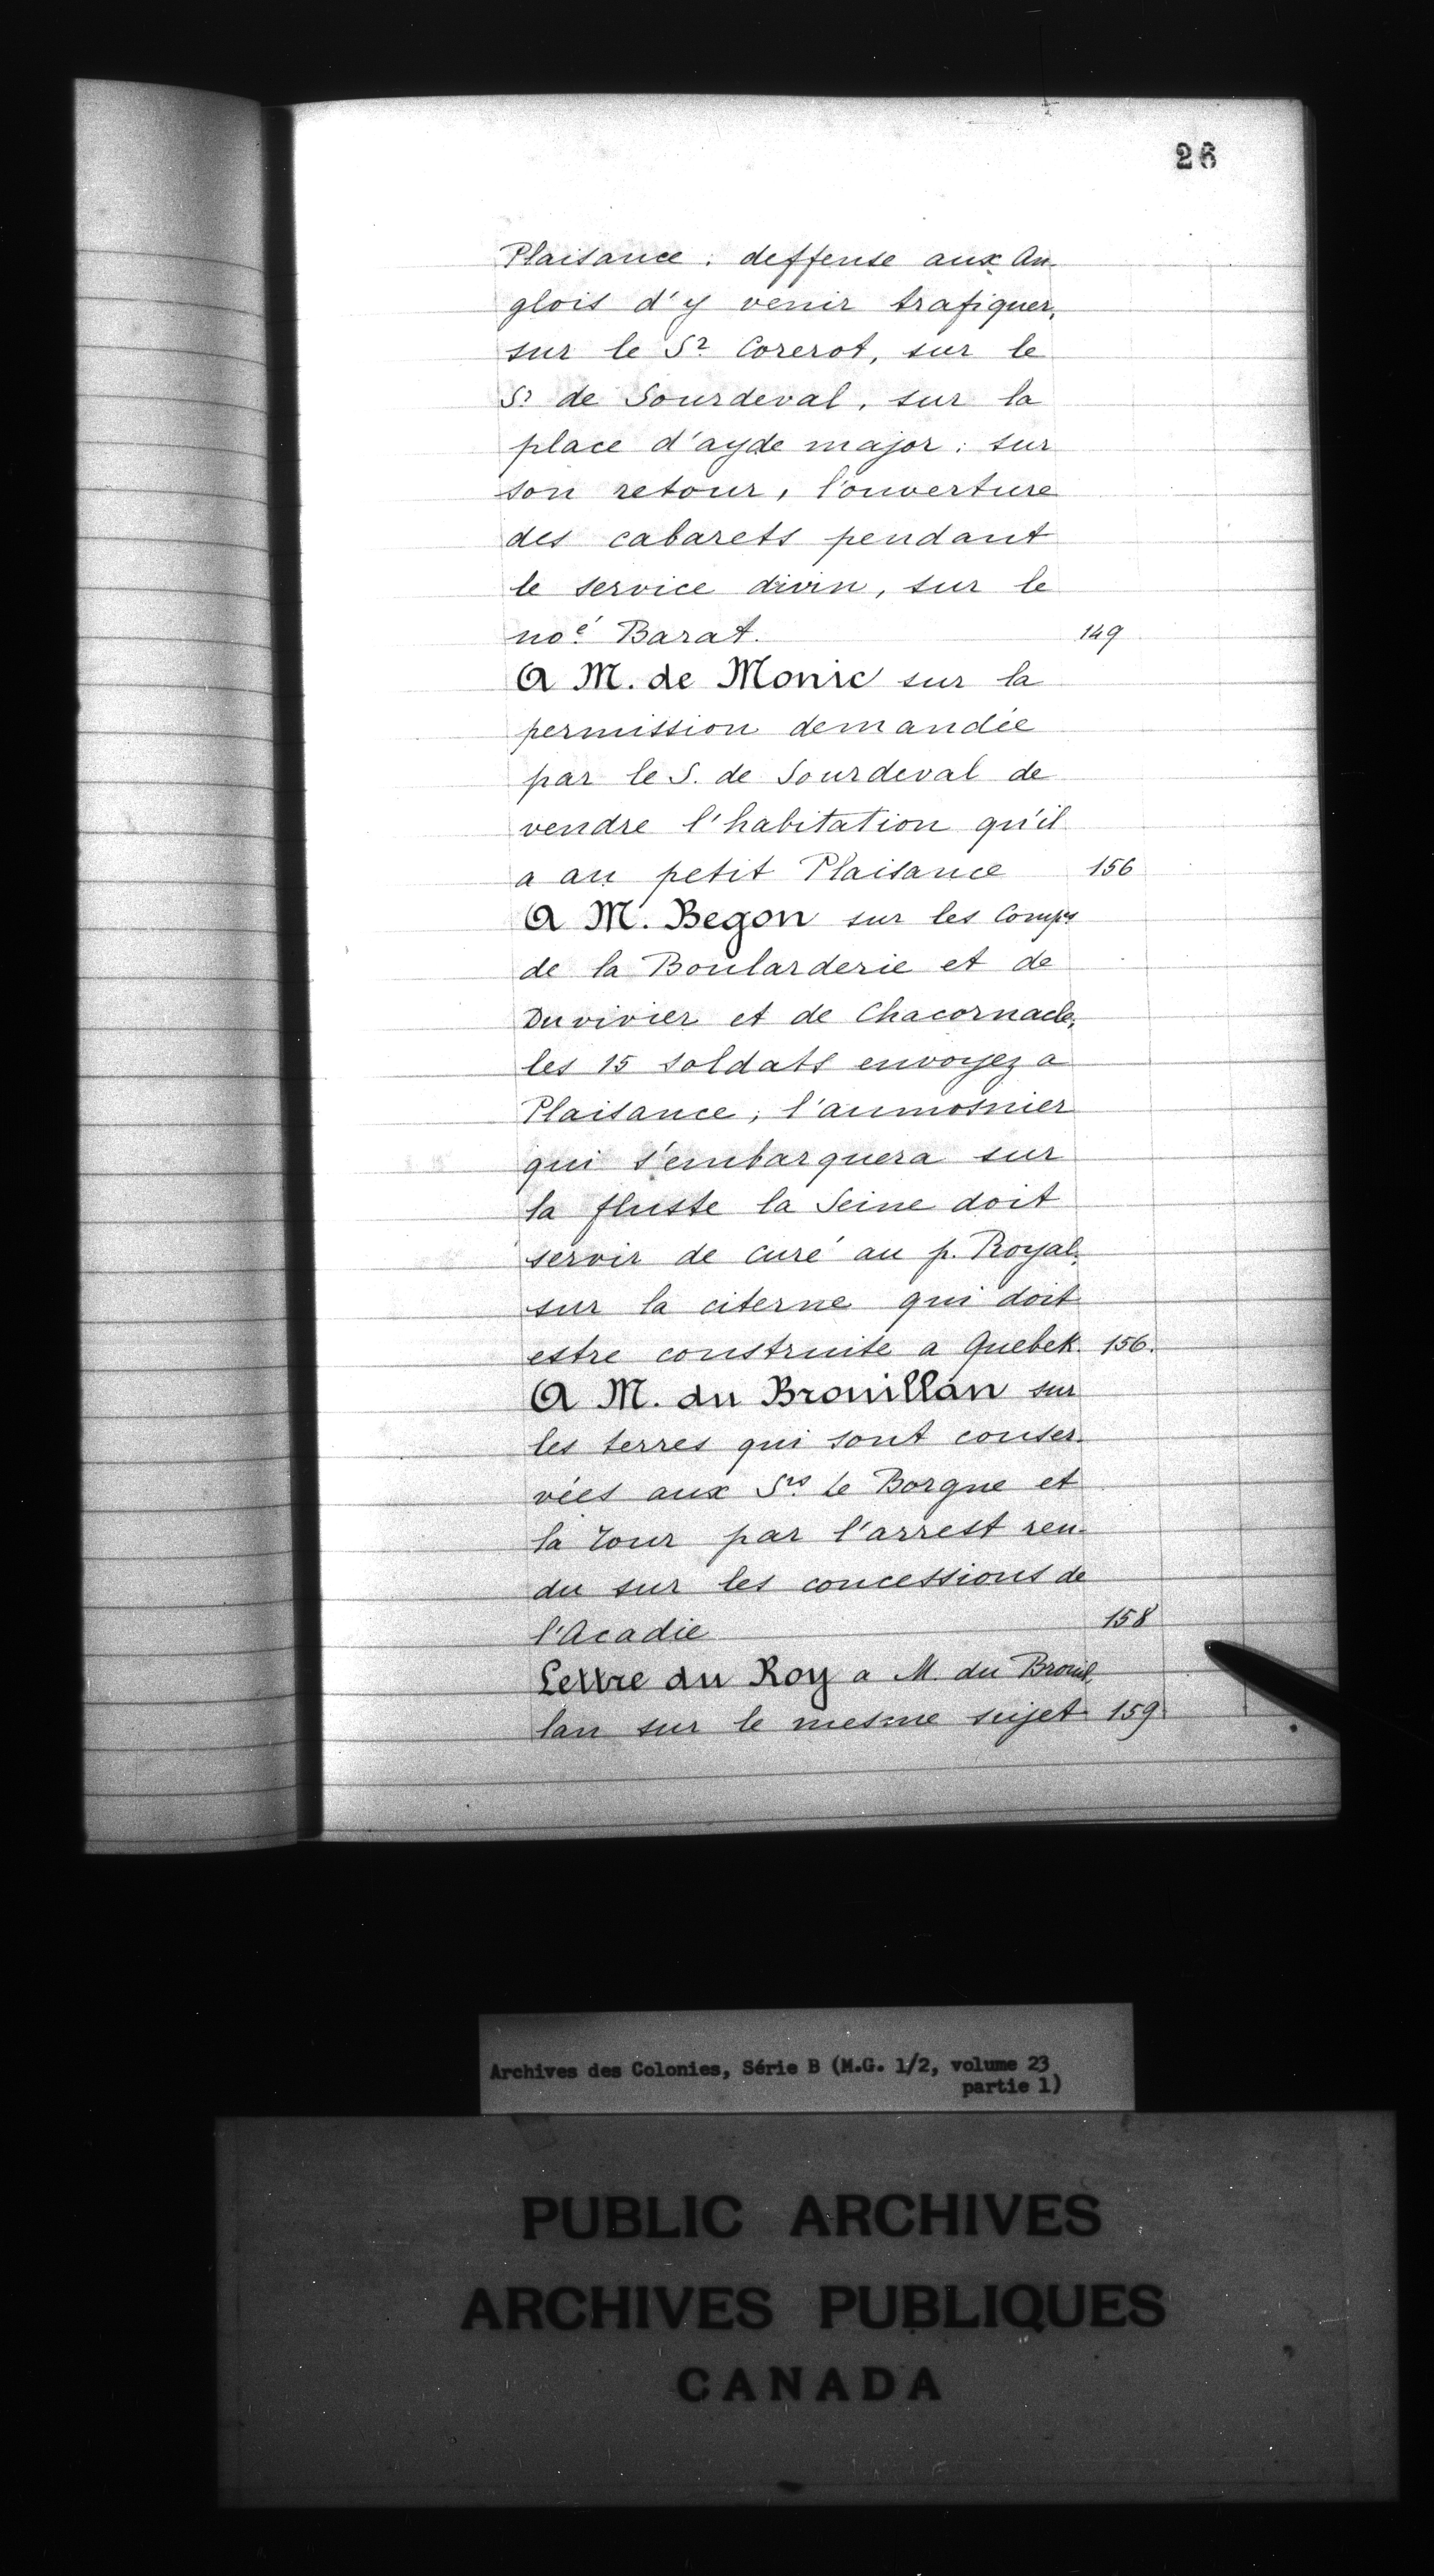 26
Plaisance : deffense aux An-
glois d'y venir trafiquer,
sur le Sr Corerot, sur le
Sr de Sourdeval, sur la
place d'ayde major : sur
son retour, l'ouverture
des cabarets pendant
le service divin, sur le
noé Barat. 149
A M. de Monic sur la
permission demandée
par le S. de Sourdeval de
vendre l'habitation qu'il
a au petit Plaisance 156
A M. Begon sur les Comps
de la Boularderie et de
Duvivier et de Chacornacle,
les 15 soldats envoyez a
Plaisance, l'aumosnier
qui s'embarquera sur
la fluste la Seine doit
servir de curé au p. Royal,
sur la citerne qui doit
estre construite a Quebek. 156.
A M. du Brouillan sur
les terres qui sont conser-
vées aux Srs le Borgne et
la Tour par l'arrest ren-
du sur les concessions de
l'Acadie 158
Lettre du Roy a M. du Brouil-
lan sur le mesme sujet 159
Archives des Colonies, Série B (M.G. 1/2, volume 23
partie 1)
PUBLIC ARCHIVES
ARCHIVES PUBLIQUES
CANADA